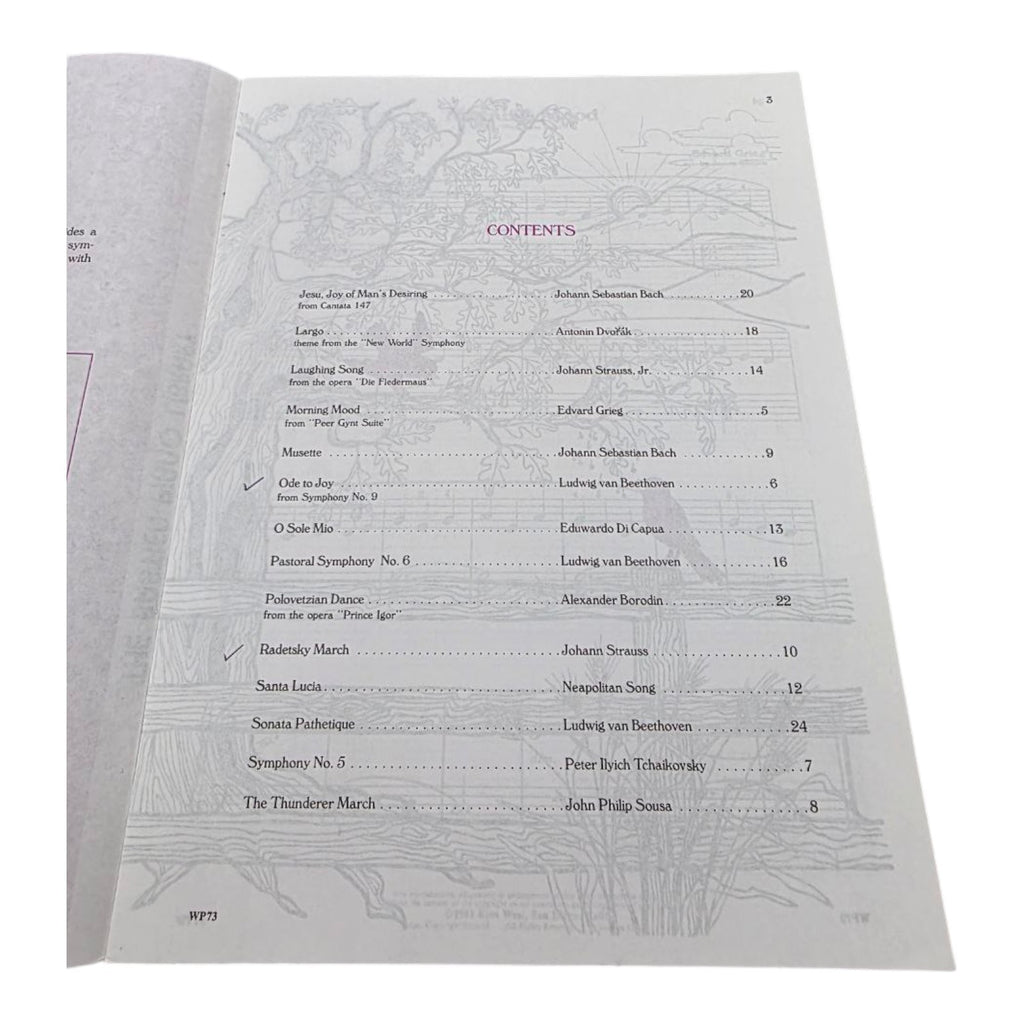 des a
sym-
with
3
CONTENTS
Jesu, Joy of Man's Desiring . . . . . . . . . . . . . . . . . . Johann Sebastian Bach . . . . . . . . . . . . 20
from Cantata 147
Largo . . . . . . . . . . . . . . . . . . . . . . . . . . . . . . . . Antonin Dvořák . . . . . . . . . . . . . . . . . 18
theme from the "New World" Symphony
Laughing Song . . . . . . . . . . . . . . . . . . . . . . . . . . Johann Strauss, Jr. . . . . . . . . . . . . . . . 14
from the opera "Die Fledermaus"
Morning Mood . . . . . . . . . . . . . . . . . . . . . . . . . . Edvard Grieg . . . . . . . . . . . . . . . . . . . . 5
from "Peer Gynt Suite"
Musette . . . . . . . . . . . . . . . . . . . . . . . . . . . . . . . Johann Sebastian Bach . . . . . . . . . . . . . 9
Ode to Joy . . . . . . . . . . . . . . . . . . . . . . . . . . . . . Ludwig van Beethoven . . . . . . . . . . . . . 6
from Symphony No. 9
O Sole Mio . . . . . . . . . . . . . . . . . . . . . . . . . . . . . Eduwardo Di Capua . . . . . . . . . . . . . . 13
Pastoral Symphony No. 6 . . . . . . . . . . . . . . . . . . Ludwig van Beethoven . . . . . . . . . . . . 16
Polovetzian Dance . . . . . . . . . . . . . . . . . . . . . . . . Alexander Borodin . . . . . . . . . . . . . . . 22
from the opera "Prince Igor"
Radetsky March . . . . . . . . . . . . . . . . . . . . . . . . . Johann Strauss . . . . . . . . . . . . . . . . . . 10
Santa Lucia . . . . . . . . . . . . . . . . . . . . . . . . . . . . . Neapolitan Song . . . . . . . . . . . . . . . . . 12
Sonata Pathetique . . . . . . . . . . . . . . . . . . . . . . . . Ludwig van Beethoven . . . . . . . . . . . . 24
Symphony No. 5 . . . . . . . . . . . . . . . . . . . . . . . . . Peter Ilyich Tchaikovsky . . . . . . . . . . . 7
The Thunderer March . . . . . . . . . . . . . . . . . . . . . John Philip Sousa . . . . . . . . . . . . . . . . 8
WP73